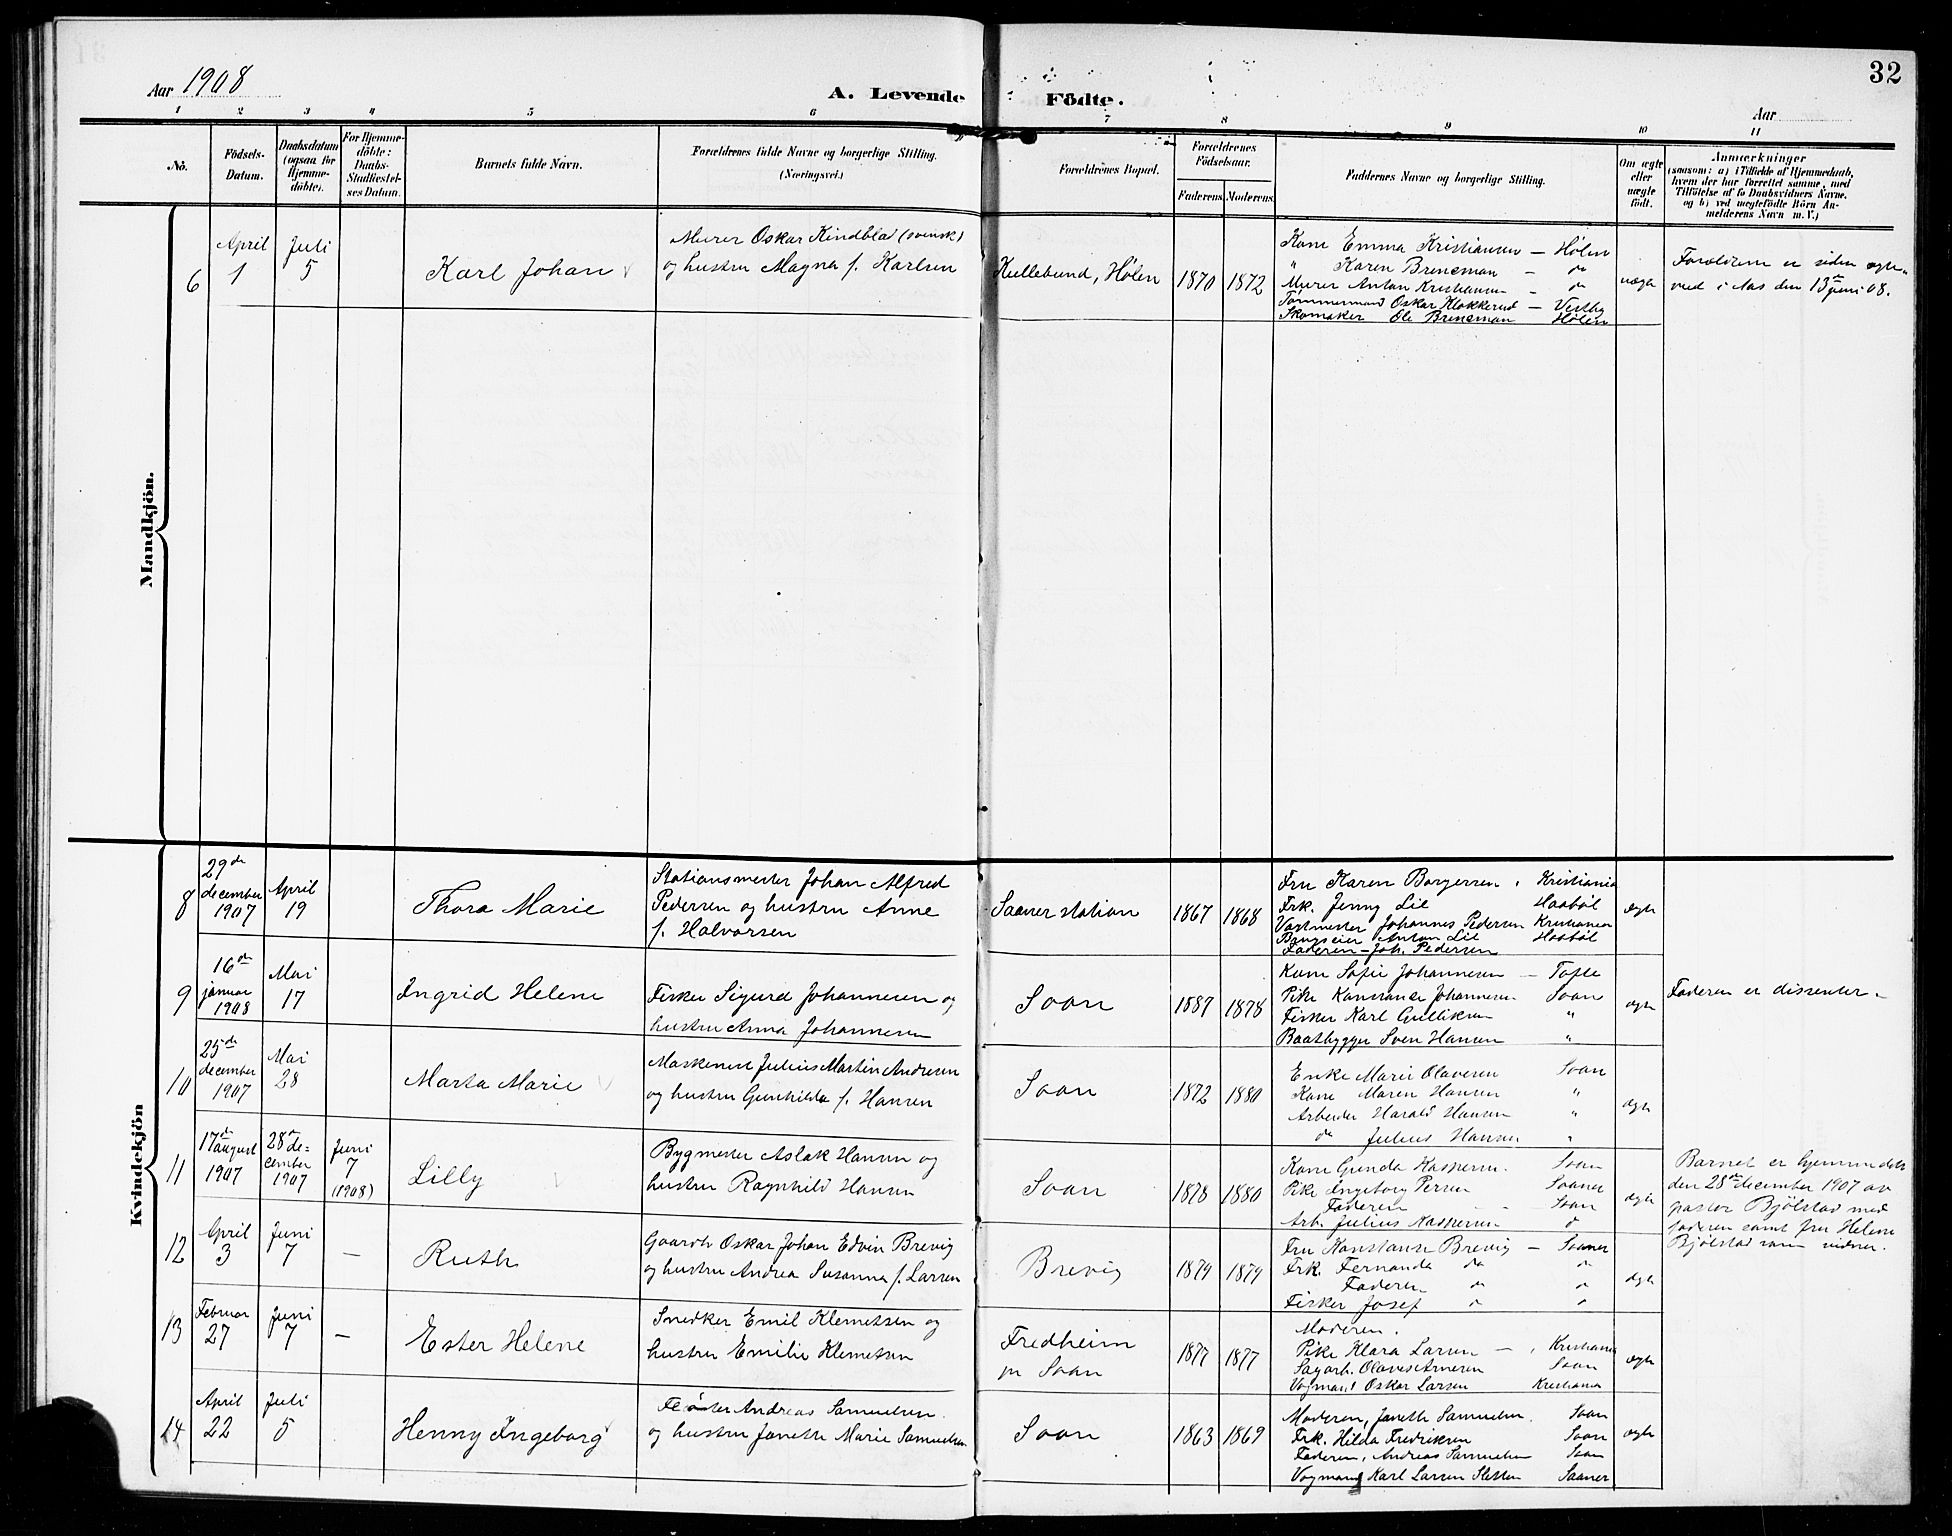 32
Aar 1908
A. Levende Födte.
Aar
1 2 3 4 5 6 7 8 9 10 11
No.
Födsels-
Datum.
Daabsdatum
(ogsaa for
Hjemme-
döbte).
For Hjemme-
döbte:
Daabs-
Stadfæstel-
ses Datum.
Barnets fulde Navn.
Forældrenes fulde Navne og borgerlige Stilling.
(Næringsvei.)
Forældrenes Bopæl.
Forældrenes
Födselsaar.
Faderens. Moderens.
Faddernes Navne og borgerlige Stilling.
Om ægte
eller
uægte
födt.
Anmærkninger
(saasom: a) i Tilfælde af Hjemmedaab,
hvem der har forrettet samme, med
Tilföielse af to Daabsvidners Navne,
og b) ved uægtefödte Börn An-
melderens Navn m. V.)
Mandkjön.
6
April
1
Juli
5
Karl Johan
Murer Oskar Kindblad (svensk)
og hustru Magna f. Karlsen
Kullebund, Hølen
1870
1872
Kone Emma Kristiansen — Hølen
" Karen Breneman — do
Murer Anton Kristiansen — do
Tømmermand Oskar Klokkerud — Vestby
Skomaker Ole Breneman Hølen
uægte
Forældrene er siden egte-
viet i Aas den 13de juni 08.
Kvindekjön
8
29de
december
1907
April
19
Thora Marie
Stationsmester Johan Alfred
Pedersen og hustru Anne
f. Halvorsen
Saaner station
1867
1868
Fru Karen Borgersen, Kristiania
Frk. Jenny Lie Haabøl
Vagtmester Johannes Pedersen Kristiania
Anton Lie Haabøl
Faderen - Joh. Pedersen
ægte
9
16de
januar
1908
Mai
17
Ingrid Helene
Fisker Sigurd Johannesen og
hustru Anna Johannesen
Soon
1887
1878
Kone Sofie Johannesen — Tofte
Pike Konstanse Johannesen Soon
Fisker Karl Gulliksen "
Baatbygger Sven Hansen "
ægte
Faderen er dissenter.
10
25de
december
1907
Mai
28
Marta Marie
Maskinist Julius Martin Andresen
og hustru Gunhilda f. Hansen
Soon
1872
1880
Enke Marie Olavesen Soon
Kone Maren Hansen "
Arbeider Harald Hansen "
do Julius Hansen "
ægte
11
17de
august
1907
28de de-
cember
1907
Juni
7
(1908)
Lilly
Bygmester Aslak Hansen og
hustru Ragnhild Hansen
Soon
1878
1880
Kone Gunda Kaspersen. Soon
Pike Ingeborg Persen Saaner
Faderen — Soon
Arb. Julius Kaspersen do
ægte
Barnet er hjemmedøbt
den 28de december 1907 av
pastor Bjølstad med
faderen samt fru Helene
Bjølstad som vidner.
12
April
3
Juni
7
—
Ruth
Gaardb. Oskar Johan Edvin Brevig
og hustru Andrea Susanna f. Larsen
Brevig
1879
1879
Fru Konstanse Brevig — Saaner
Frk. Fernanda do do
Faderen do do
Fisker Josef do do
ægte
13
Februar
27
Juni
7
—
Ester Helene
Snedker Emil Klemetsen og
hustru Emilie Klemetsen
Fredheim
pr Soon
1877
1877
Moderen.
Pike Klara Larsen — , Kristiania
Sagarb. Olaves Arnesen Soon
Vogmand Oskar Larsen Kristiania
ægte
14
April
22
Juli
5
Henny Ingeborg
Fløter Andreas Samuelsen
og hustru Janette Marie Samuelsen
Soon
1863
1869
Moderen, Janette Samuelsen. Soon
Frk. Hilda Fredriksen Soon
Faderen, Andreas Samuelsen Soon
Vogmand Karl Larsen Sletten Saaner
ægte